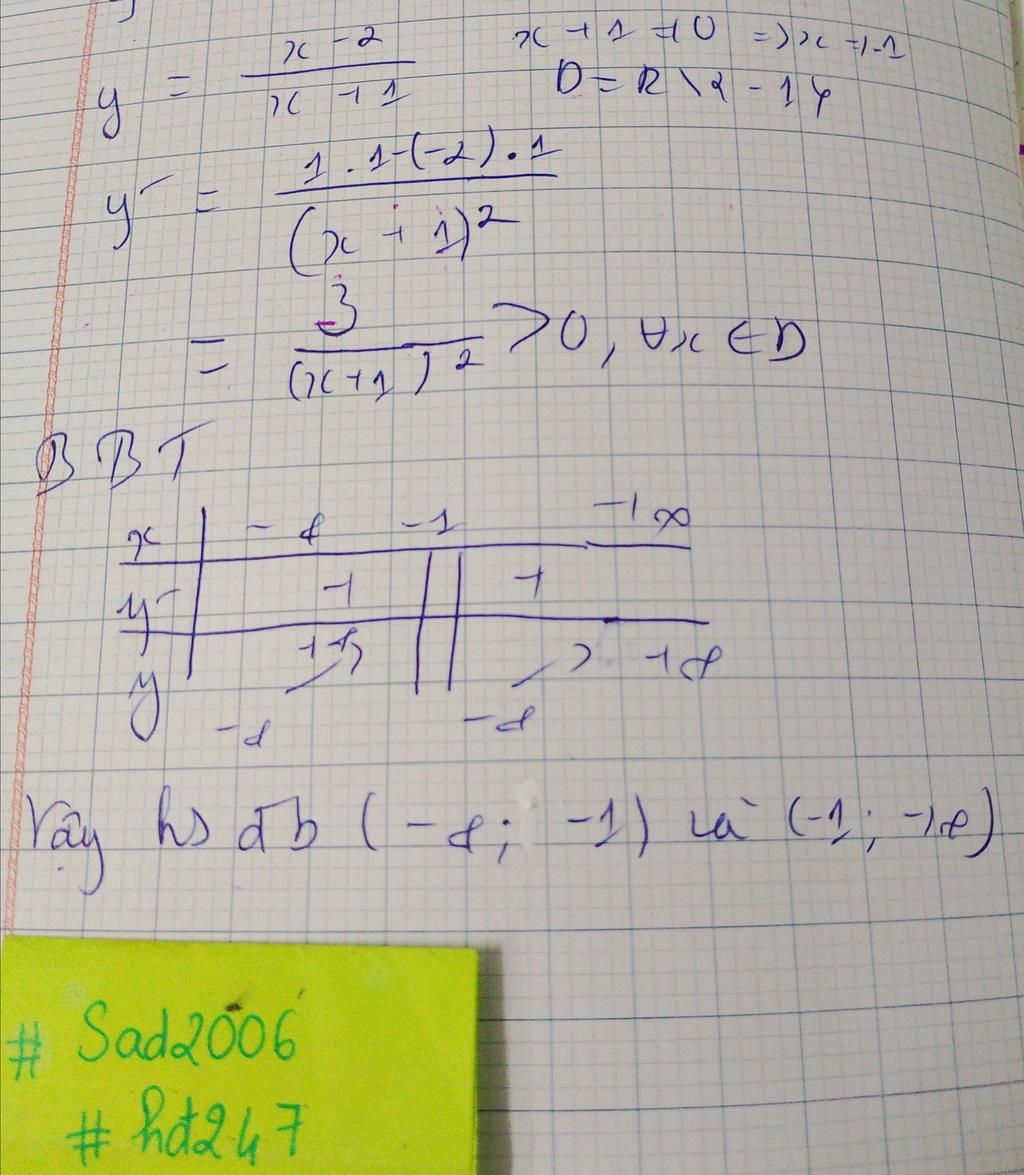 y = \frac{x-2}{x+1} x + 1 ≠ 0 => x ≠ -1
D = R \ {-1}
y' = \frac{1.1-(-2).1}{(x+1)^2}
= \frac{3}{(x+1)^2} > 0, ∀x ∈ D
BBT
x -∞ -1 +∞
y' + +
y +∞ +∞
-∞ -∞
Vậy hs đb (-∞; -1) và (-1; +∞)
# Sad2006
# hđ247